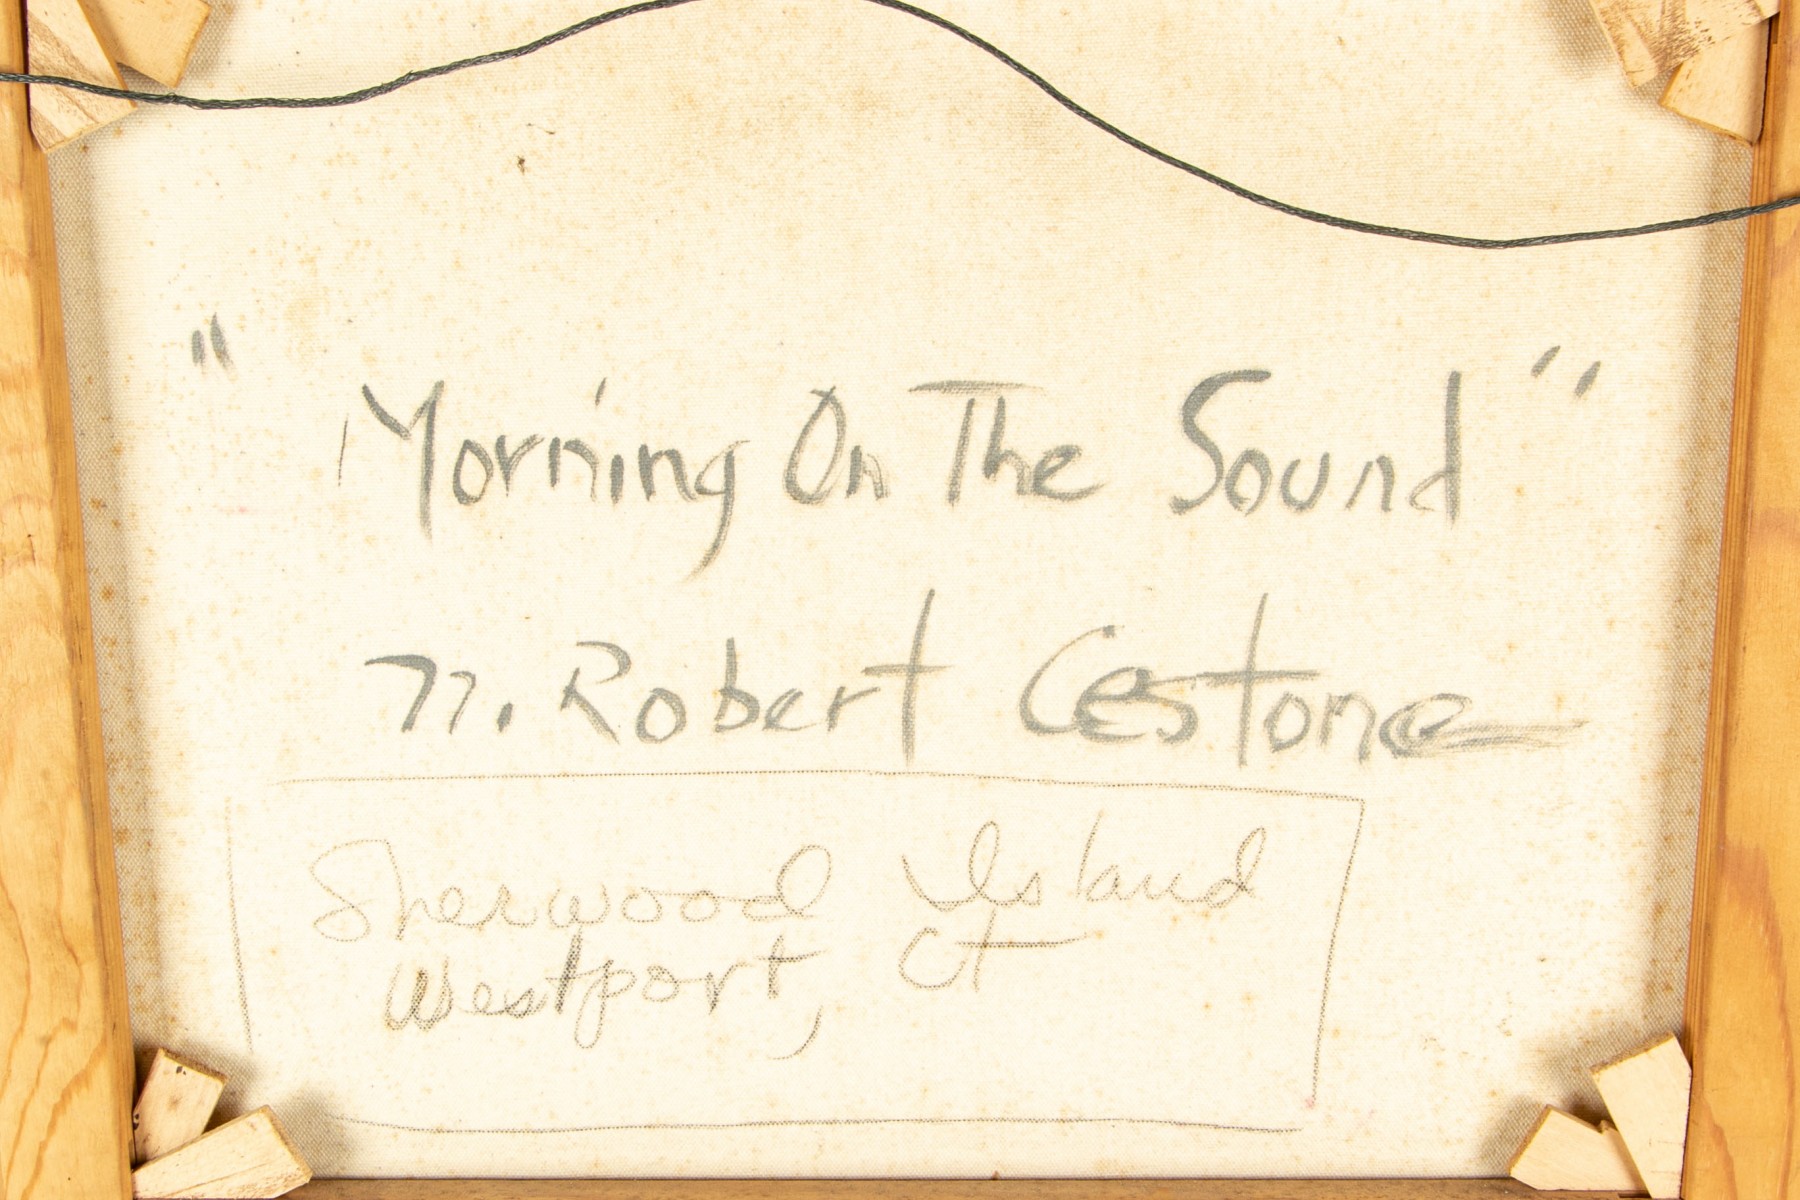 "Morning On The Sound"
n. Robert Cestone
Sherwood Island
Westport, Ct